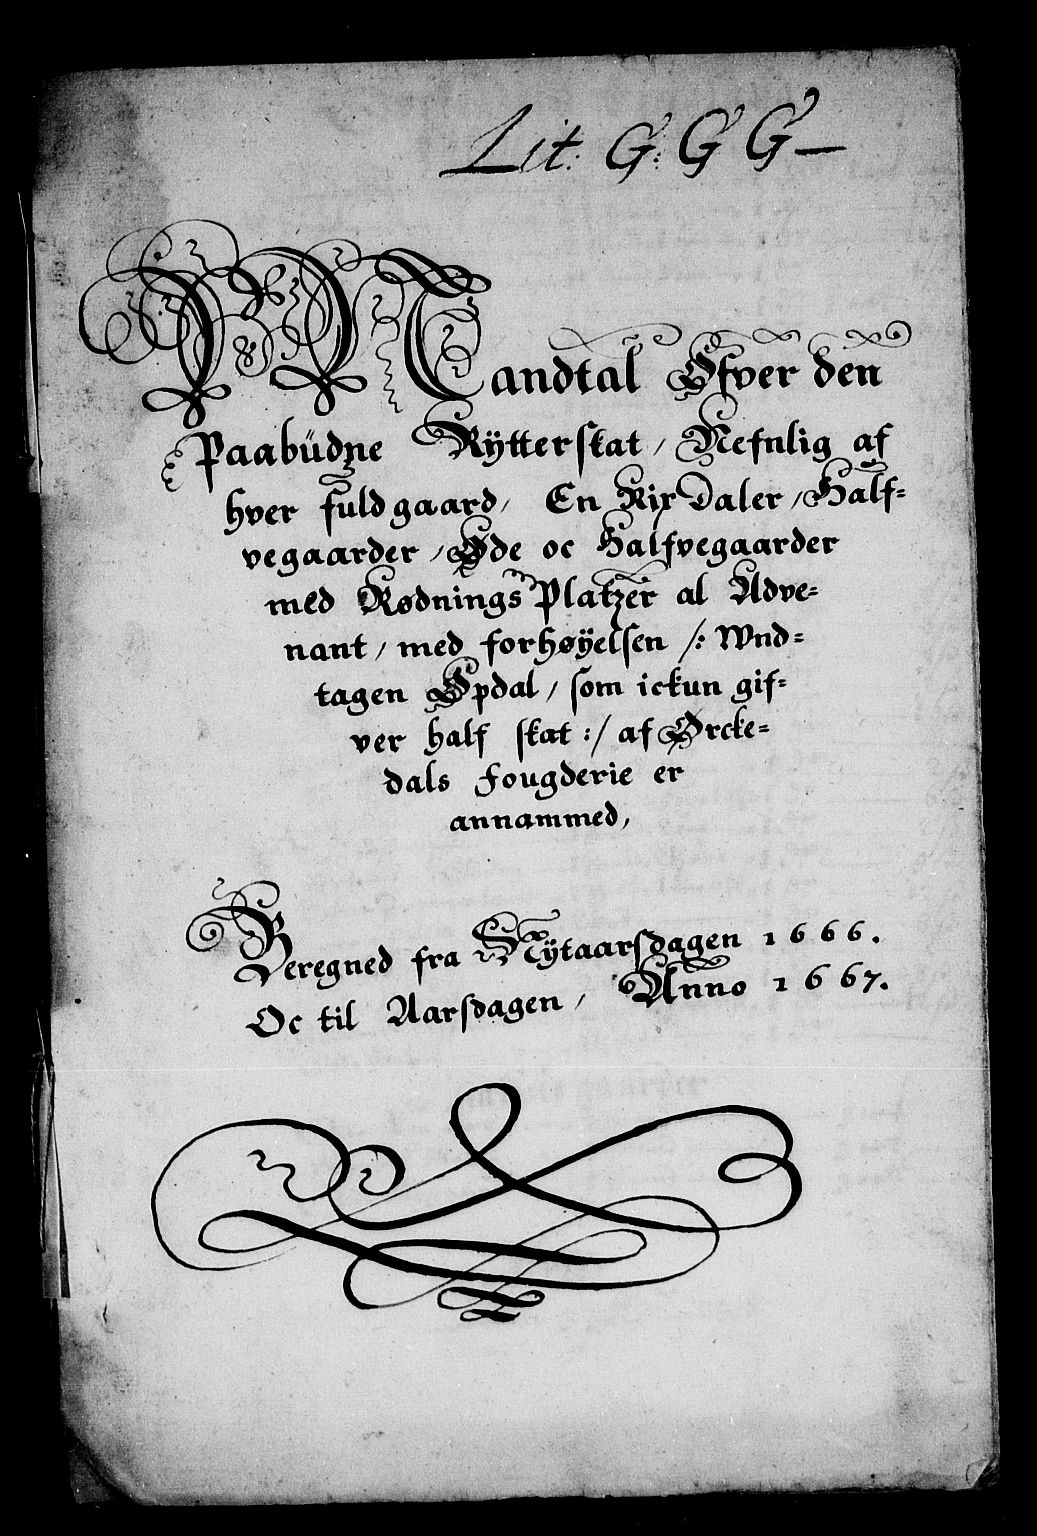 Lit: G: G G
Mandtal Øfver den
Paabüdne Rÿtterskat, Nefnlig af
hver fuldgaard, En Rix Daler, Half=
vegaarder, Øde oc Halfvegaarder
med Rødnings Platzer al Udve=
nant, med forhøÿelsen /: Wnd=
tagen Opdal, som ickun gif=
ver half skat :/ af Ørcke=
dals Fougderie er
annammed,
Beregned fra Nytaarsdagen 1666.
Oc til Aarsdagen, Anno 1667.